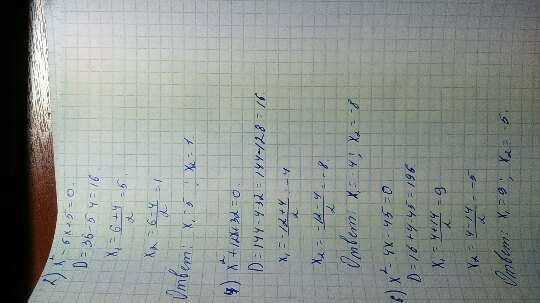 2) x² - 6x + 5 = 0
D = 36 - 5·4 = 16
x₁ = (6+4)/2 = 5
x₂ = (6-4)/2 = 1
Ответ: x₁ = 5; x₂ = 1.
4) x² + 12x + 32 = 0
D = 144 - 4·32 = 144 - 128 = 16
x₁ = (-12+4)/2 = -4
x₂ = (-12-4)/2 = -8
Ответ: x = -4; x₂ = -8
6) x² - 4x - 45 = 0
D = 16 + 4·45 = 196
x₁ = (4+14)/2 = 9
x₂ = (4-14)/2 = -5
Ответ: x₁ = 9; x₂ = -5.